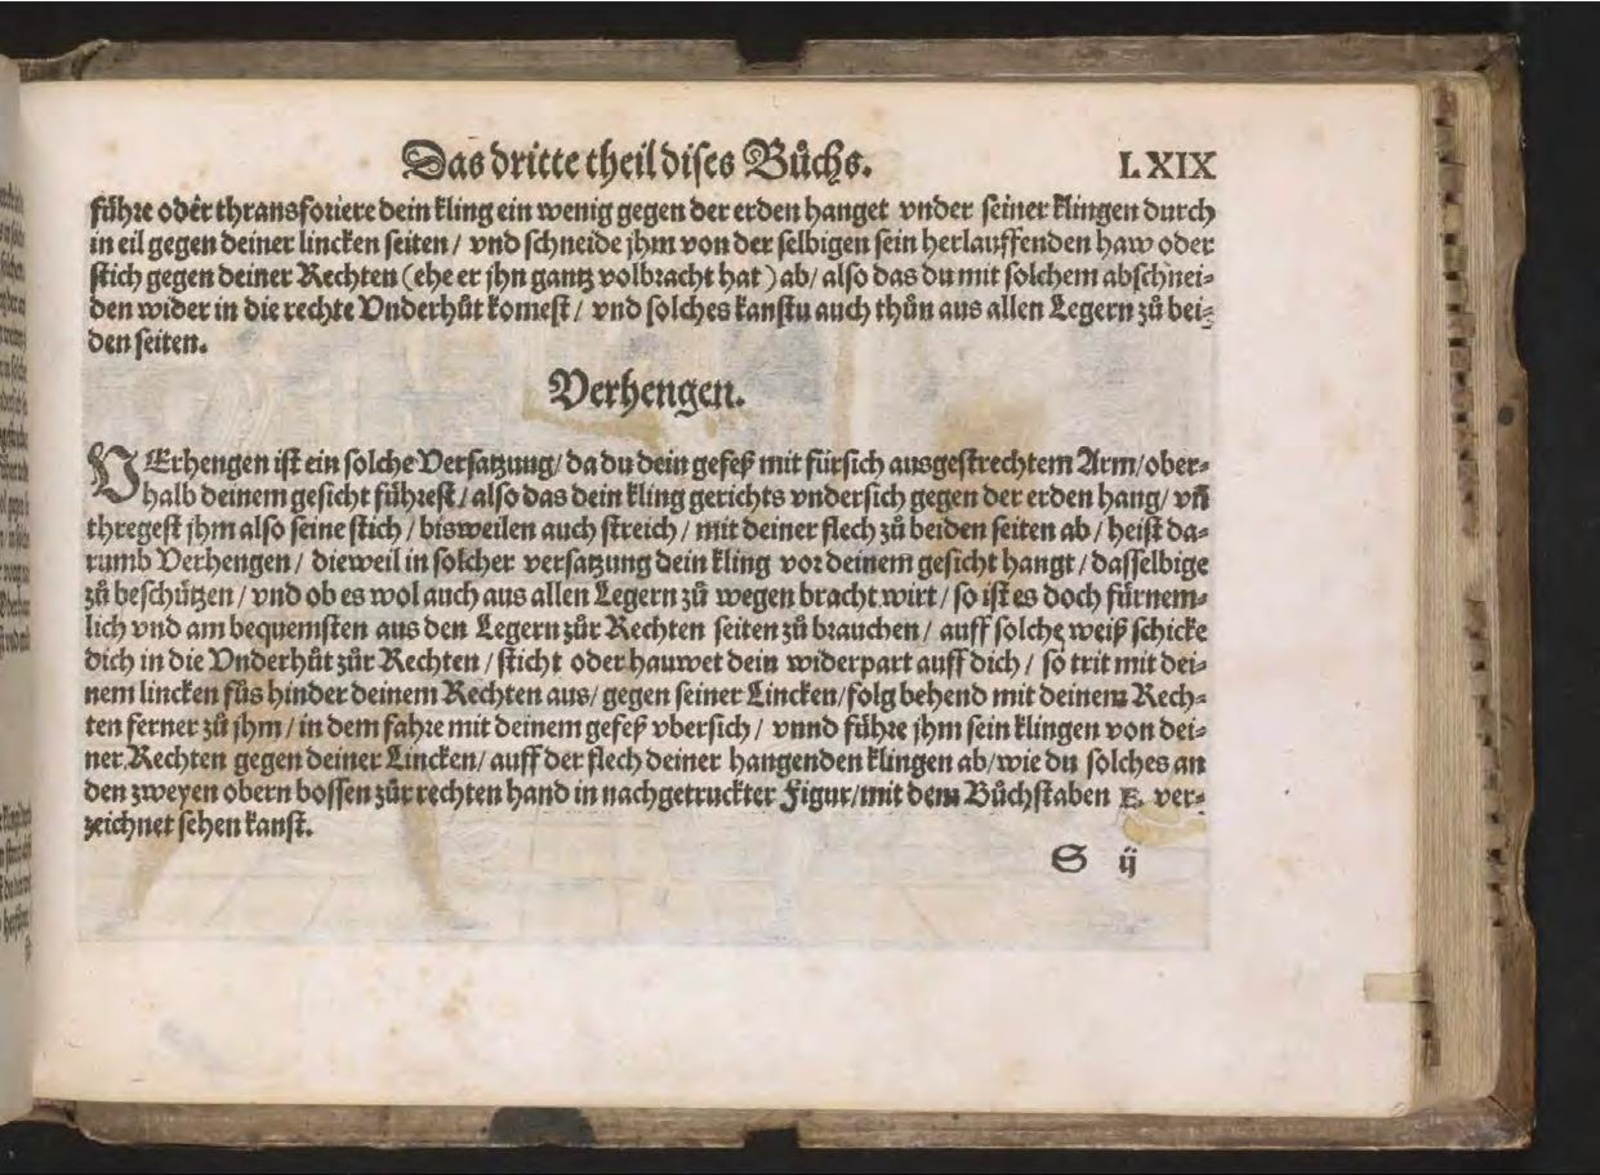 Das dritte theil dises Bůchs. LXIX
fůhre oder thransforiere dein kling ein wenig gegen der erden hanget vnder seiner klingen durch
in eil gegen deiner lincken seiten / vnd schneide jhm von der selbigen sein herlauffenden haw oder
stich gegen deiner Rechten (ehe er jhn gantz volbracht hat) ab / also das du mit solchem abschnei-
den wider in die rechte Vnderhůt komest / vnd solches kanstu auch thůn aus allen Legern zů bei-
den seiten.
Verhengen.
VErhengen ist ein solche Versatzung / da du dein gefeß mit fürsich ausgestrecktem Arm / ober-
halb deinem gesicht fůhrest / also das dein kling gerichts vndersich gegen der erden hang / vñ
thregest jhm also seine stich / bisweilen auch streich / mit deiner flech zů beiden seiten ab / heist da-
rumb Verhengen / dieweil in solcher versatzung dein kling vor deinem gesicht hangt / dasselbige
zů beschützen / vnd ob es wol auch aus allen Legern zů wegen bracht wirt / so ist es doch fürnem-
lich vnd am bequemsten aus den Legern zůr Rechten seiten zů brauchen / auff solche weiß schicke
dich in die Vnderhůt zůr Rechten / sticht oder hauwet dein widerpart auff dich / so trit mit dei-
nem lincken fůs hinder deinem Rechten aus / gegen seiner Lincken / folg behend mit deinem Rech-
ten ferner zů jhm / in dem fahre mit deinem gefeß vbersich / vnnd fůhre jhm sein klingen von dei-
ner Rechten gegen deiner Lincken / auff der flech deiner hangenden klingen ab / wie du solches an
den zweyen obern bossen zůr rechten hand in nachgetruckter Figur / mit dem Bůchstaben E. ver-
zeichnet sehen kanst.
S ij